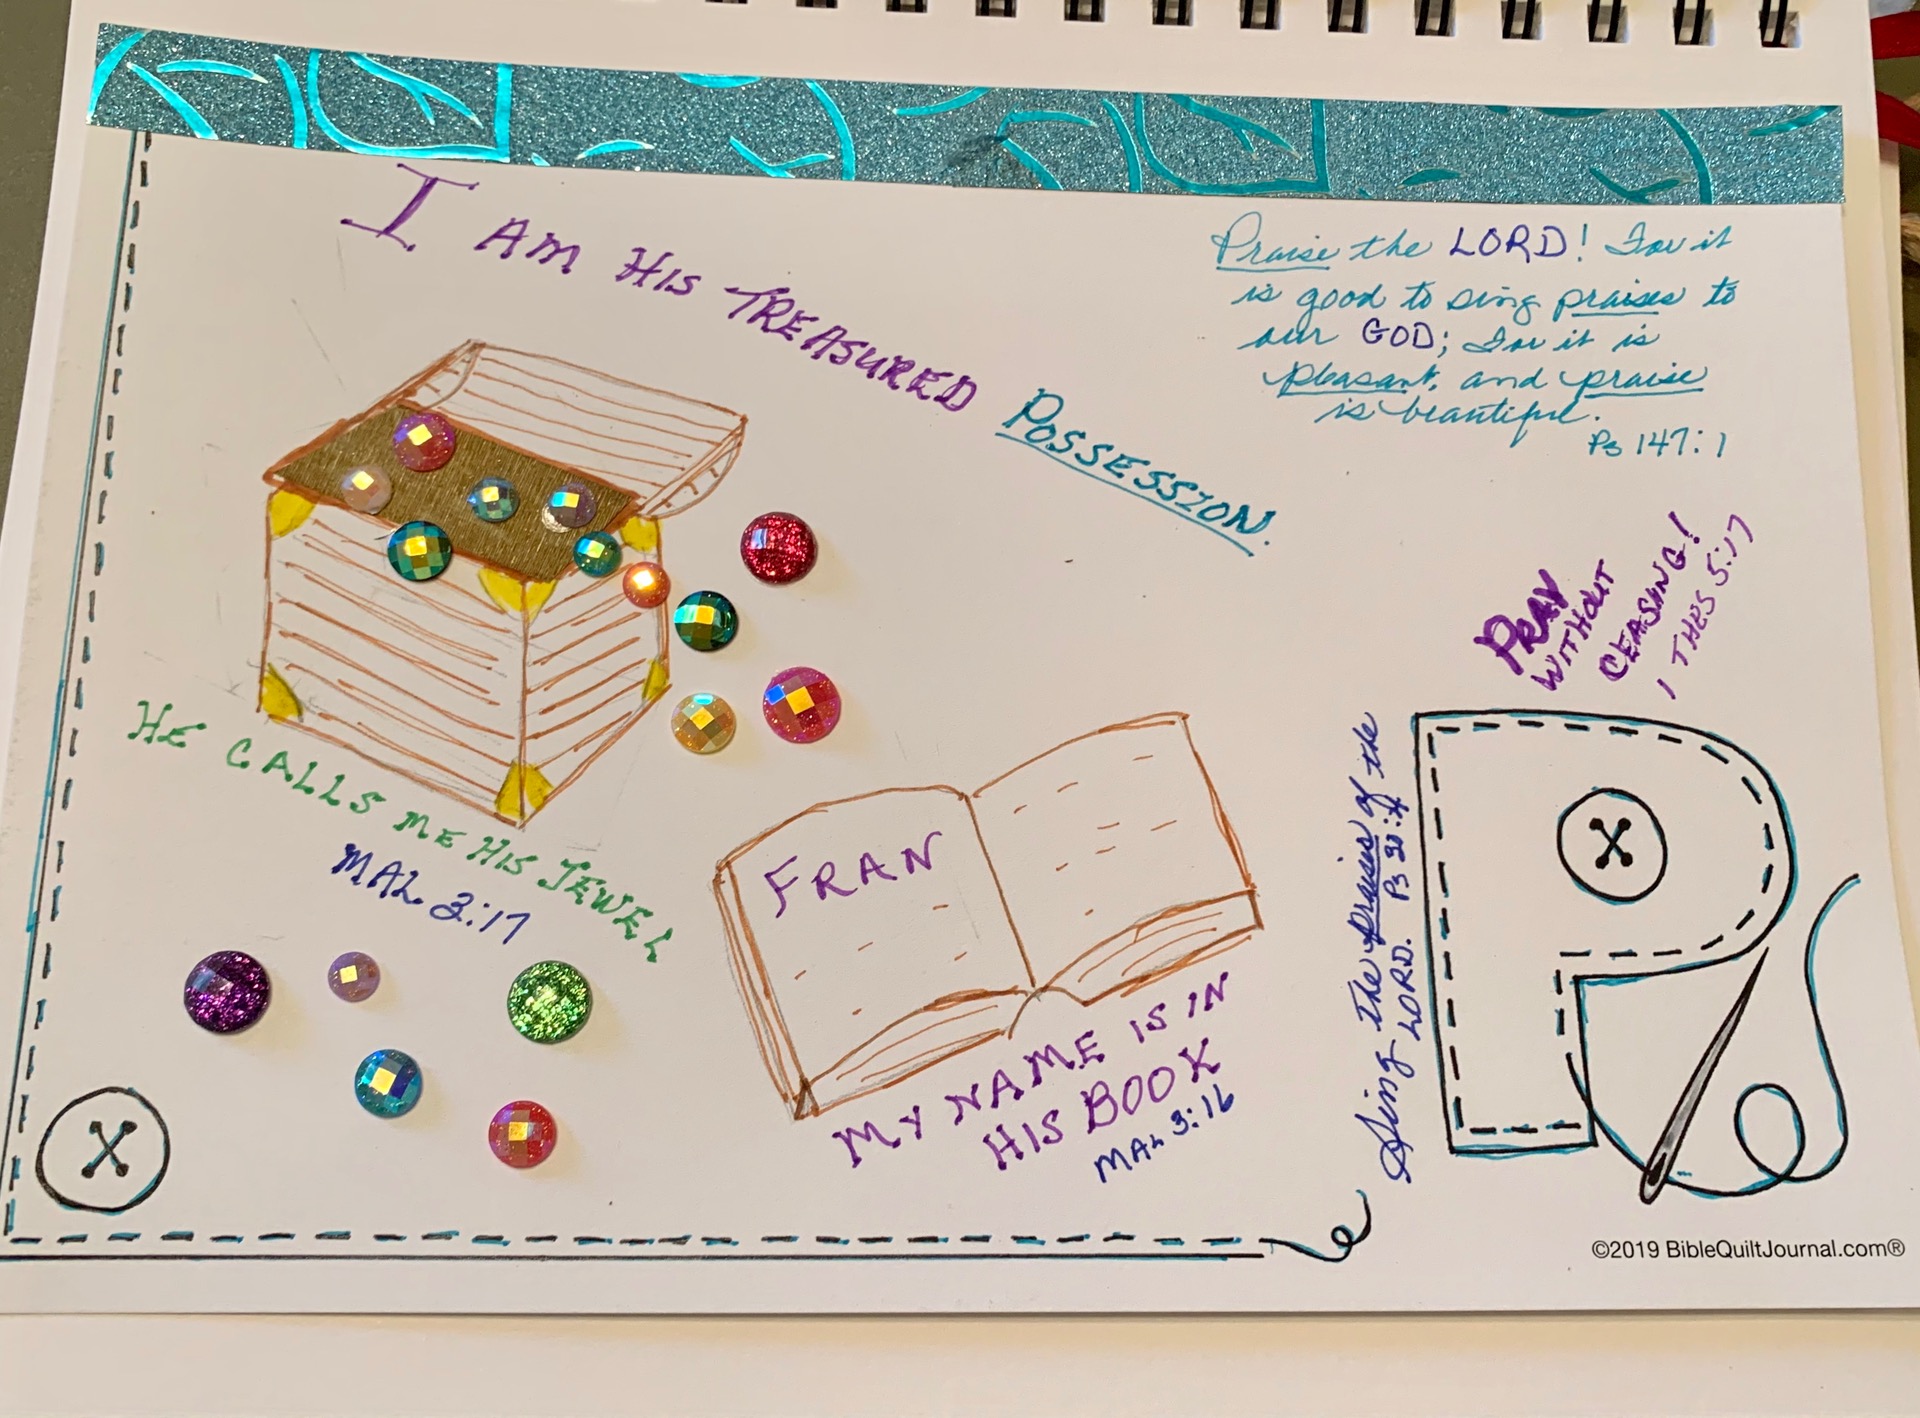 I AM HIS TREASURED POSSESSION.
Praise the LORD! For it
is good to sing praises to
our GOD; for it is
pleasant, and praise
is beautiful.
Ps 147:1
PRAY
WITHOUT
CEASING!
1 THES 5:17
HE CALLS ME HIS JEWEL
MAL 3:17
FRAN
MY NAME IS IN
HIS BOOK
MAL 3:16
Sing the praises of the
LORD. Ps
P
©2019 BibleQuiltJournal.com®